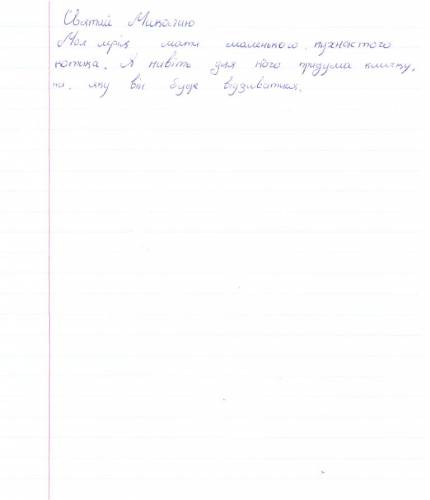 Святий Миколаю
Моя мрія, мати маленького пухнастого
котика. Я навіть для його придума кличку,
на, яку він буде відзиватися.